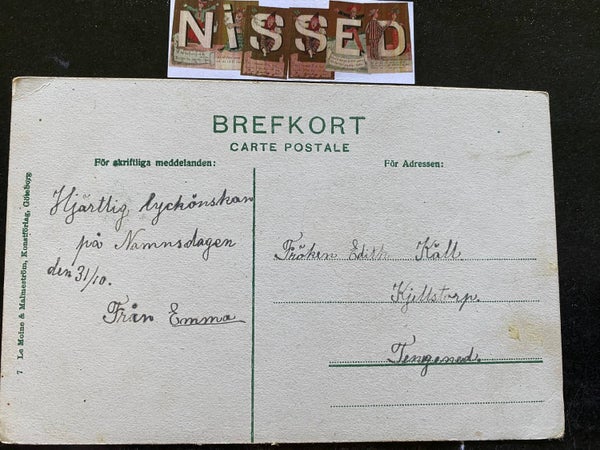 NISSED
BREFKORT
CARTE POSTALE
För skriftliga meddelanden:
För Adressen:
Hjärtlig lyckönskan
på Namnsdagen
den 31/10.
Från Emma
Fröken Edith Käll
Kjellstorp.
Tengened.
7 Le Moine & Malmeström, Konstförlag, Göteborg